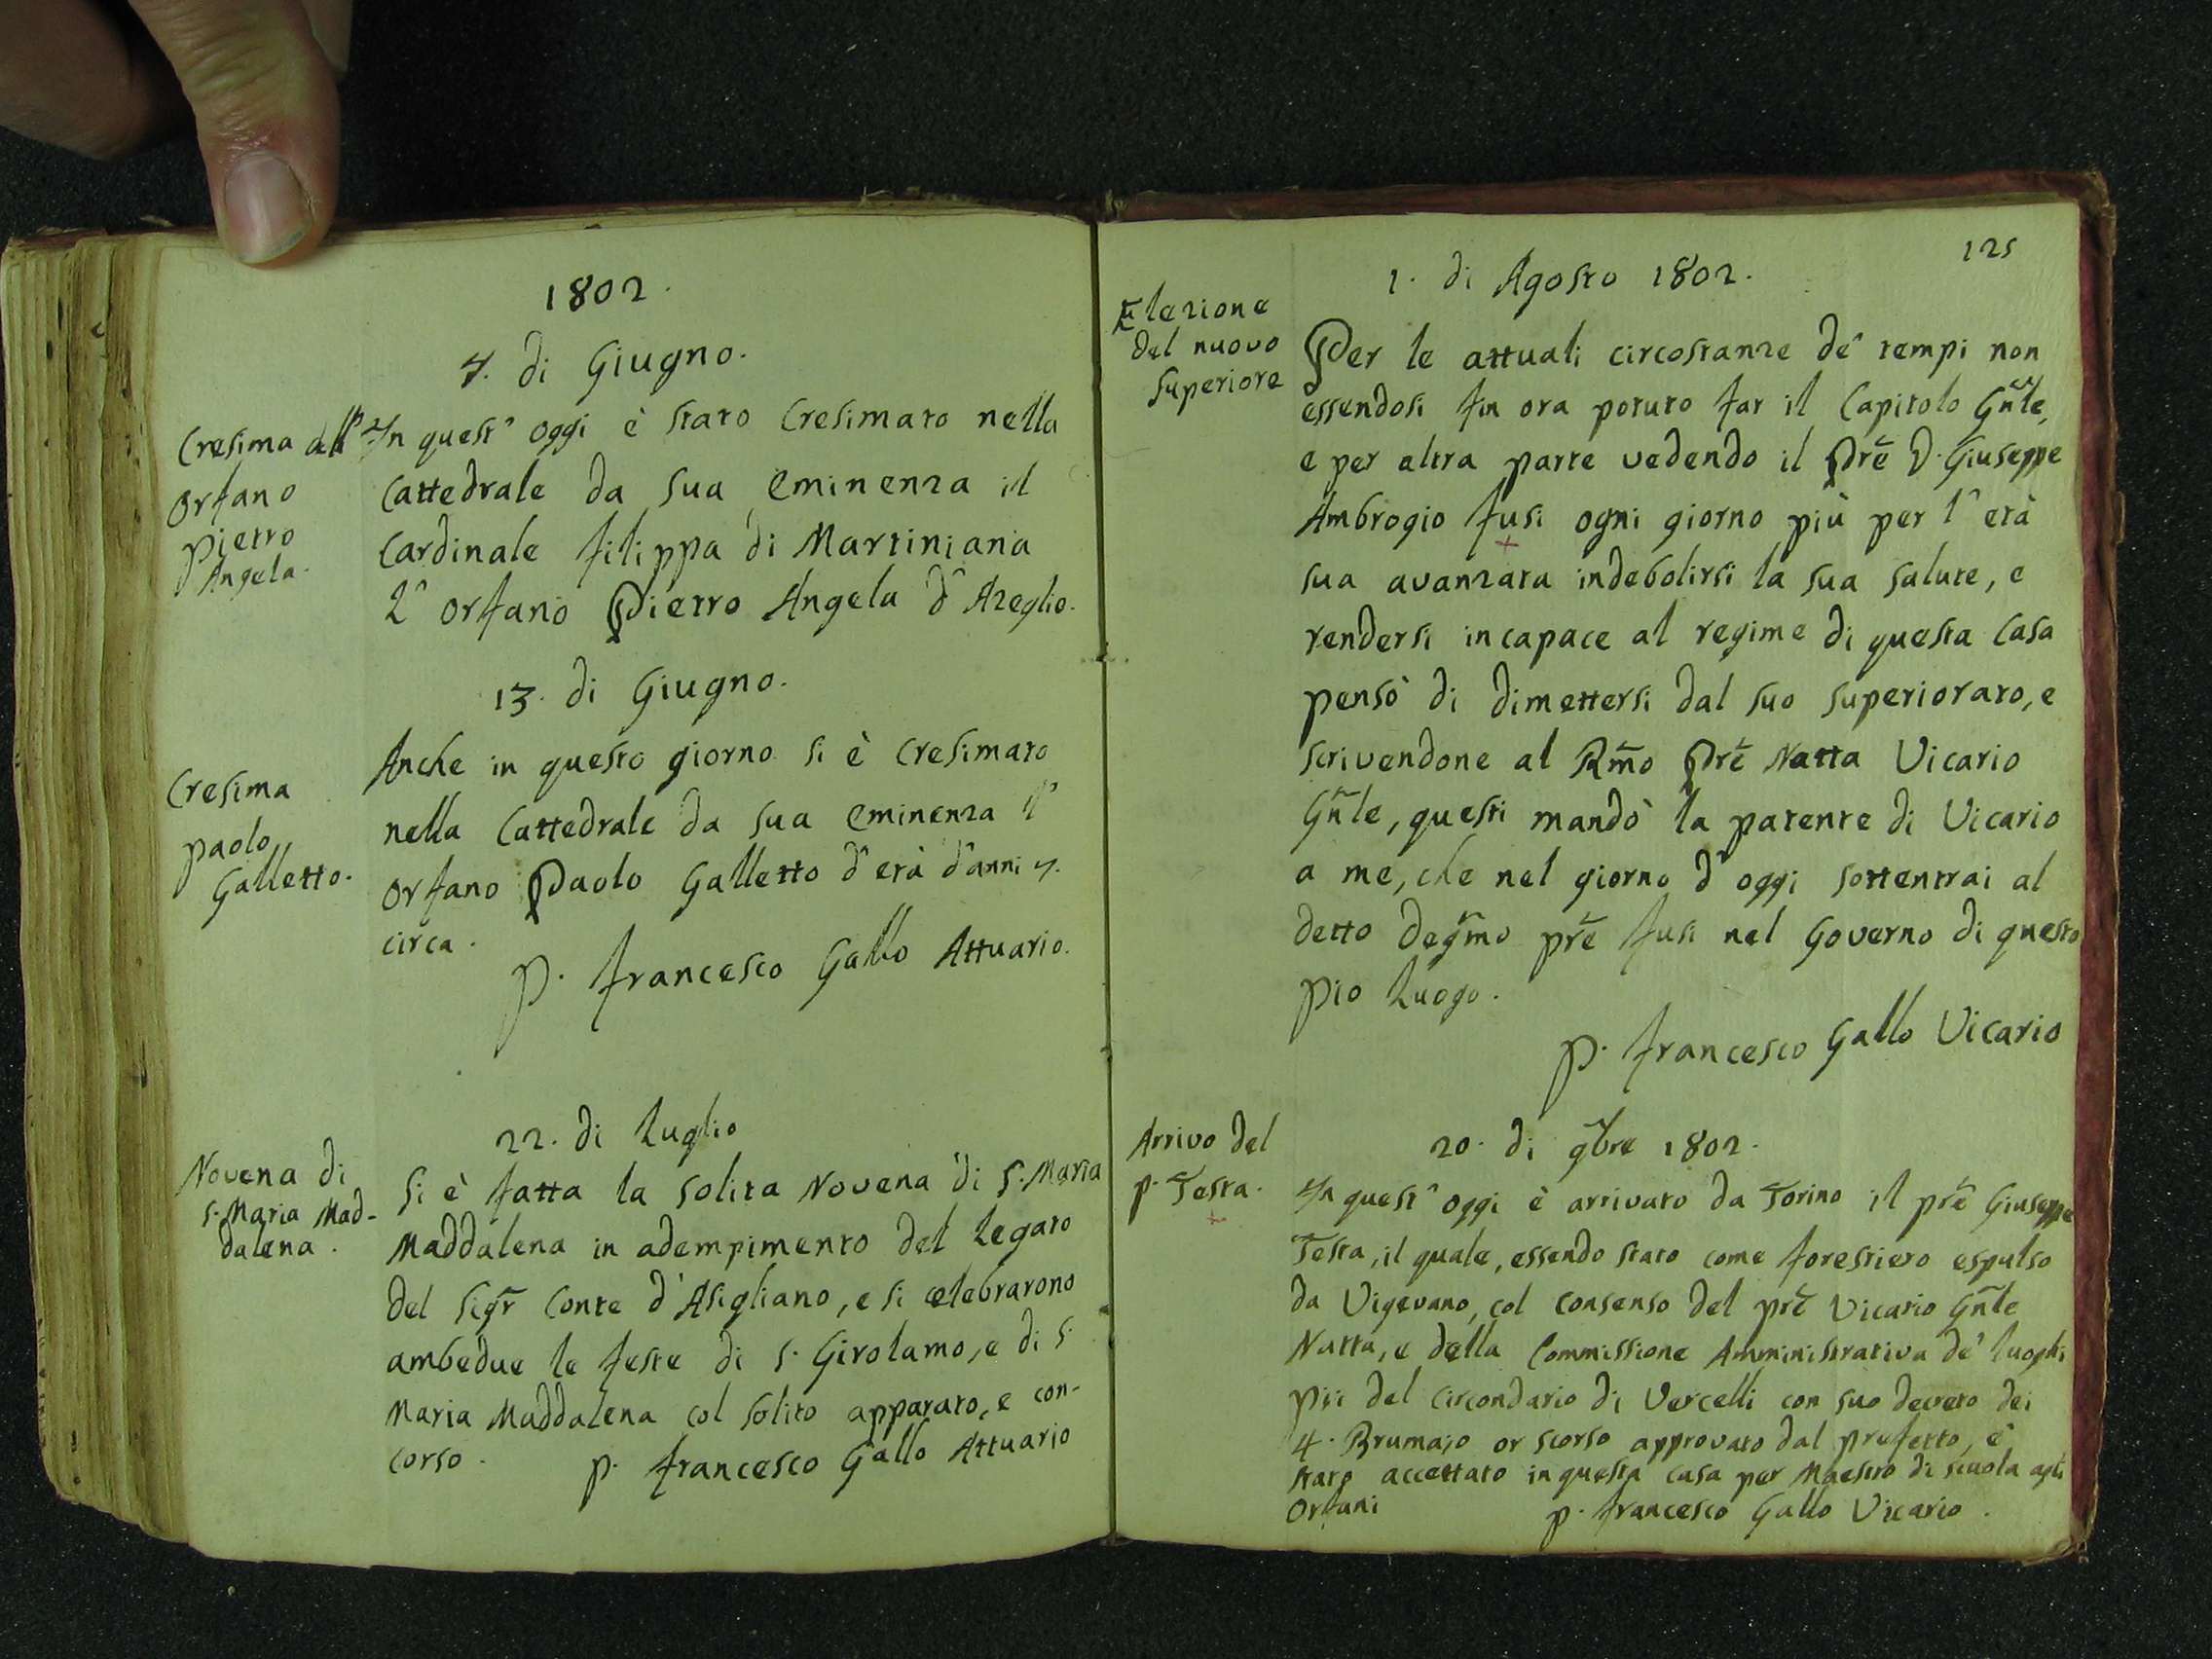 1802.
7. di Giugno.
Cresima dell'
Orfano
Pietro
Angela.
In quest' oggi è stato Cresimato nella
Cattedrale da sua Eminenza il
Cardinale filippa di Martiniana
L' orfano Pietro Angela d' Azeglio.
13. di Giugno.
Cresima
Paolo
Galletto.
Anche in questo giorno si è Cresimato
nella Cattedrale da sua Eminenza l'
orfano Paolo Galletto d'età d'anni 7.
circa.
P. francesco Gallo Attuario.
22. di Luglio
Novena di
S. Maria Mad-
dalena.
Si è fatta la solita Novena di S. Maria
Maddalena in adempimento del Legato
del Sigr Conte d'Asigliano, e si celebrarono
ambedue le feste di S. Girolamo, e di S.
Maria Maddalena col solito apparato, e con-
corso.
P. francesco Gallo Attuario
125
1. di Agosto 1802.
Elezione
del nuovo
Superiore
Per le attuali circostanze de' tempi non
essendosi fin ora potuto far il Capitolo Gñle,
e per altra parte vedendo il Prẽ D. Giuseppe
Ambrogio fusi ogni giorno più per l' età
sua avanzata indebolirsi la sua salute, e
rendersi incapace al regime di questa Casa
pensò di dimettersi dal suo superiorato, e
scrivendone al Rm̃o Prẽ Natta Vicario
Gñle, questi mandò la patente di Vicario
a me, che nel giorno d' oggi sottentrai al
detto Degm̃o prẽ fusi nel Governo di questo
Pio Luogo.
P. francesco Gallo Vicario
20. di 9bre 1802.
Arrivo del
P. Testa.
In quest' oggi è arrivato da Torino il prẽ Giuseppe
Testa, il quale, essendo stato come forestiero espulso
da Vigevano, col consenso del prẽ Vicario Gñle
Natta, e della Commissione Amministrativa de' luoghi
Pii del circondario di Vercelli con suo decreto dei
4. Brumajo or scorso approvato dal prefetto, è
stato accettato in questa casa per Maestro di scuola agli
Orfani
P. francesco Gallo Vicario.